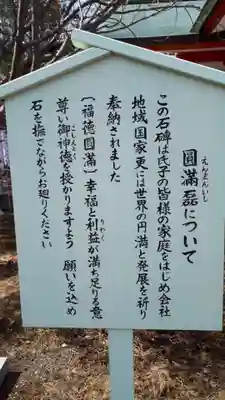 圓滿磊について
えんまんいし
この石碑は氏子の皆様の家庭をはじめ会社
地域国家更には世界の円満と発展を祈り
奉納されました
（福徳圓満）幸福と利益が満ち足りる意
りやく
尊い御神徳を授かりますよう 願いを込め
ごしんとく
石を撫でながらお廻りください